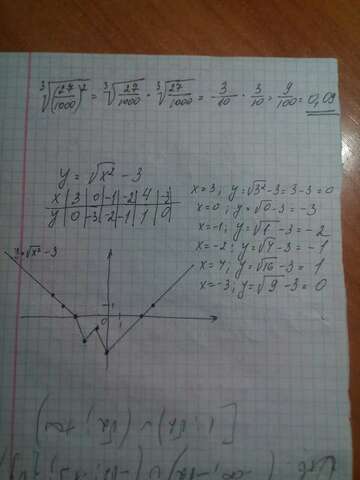 ∛(27/1000)² = ∛27/1000 · ∛27/1000 = 3/10 · 3/10 = 9/100 = 0,09
y = √x² - 3
x | 3 | 0 | -1 | -2 | 4 | -3
y | 0 | -3 | -2 | -1 | 1 | 0
x=3; y=√3²-3=3-3=0
x=0; y=√0-3=-3
x=-1; y=√1-3=-2
x=-2; y=√4-3=-1
x=4; y=√16-3=1
x=-3; y=√9-3=0
y=√x²-3
1
0
1